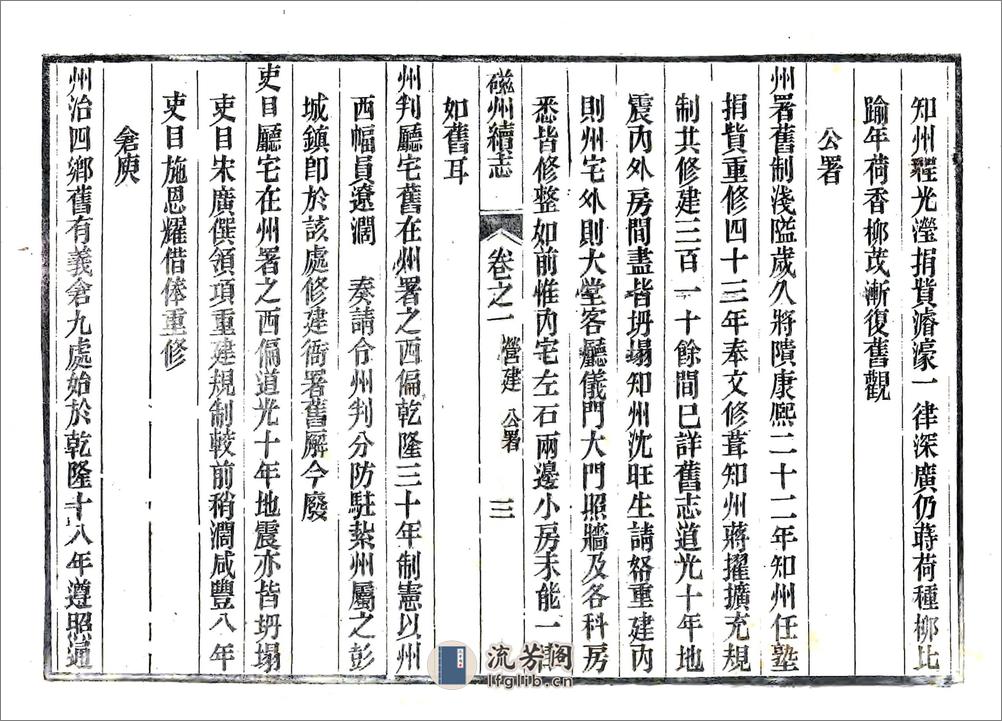 知州程光瀅捐貲濬濠一律深廣仍蒔荷種柳比
踰年荷香柳茂漸復舊觀
公署
州署舊制淺隘歲久將隤康熙二十二年知州任塾
捐貲重修四十三年奉文修葺知州蔣擢擴充規
制共修建三百一十餘間已詳舊志道光十年地
震內外房間盡皆坍塌知州沈旺生請帑重建內
則州宅外則大堂客廳儀門大門照牆及各科房
悉皆修整如前惟內宅左右兩邊小房未能一
磁州續志 卷之一 營建 公署 三
如舊耳
州判廳宅舊在州署之西偏乾隆三十年制憲以州
西幅員遼濶 奏請令州判分防駐紮州屬之彭
城鎮卽於該處修建衙署舊廨今廢
吏目廳宅在州署之西偏道光十年地震亦皆坍塌
吏目宋廣僎領項重建規制較前稍濶咸豐八年
吏目施恩耀借俸重修
倉庾
州治四鄉舊有義倉九處始於乾隆十八年遵照通
流芳閣
lfglib.cn